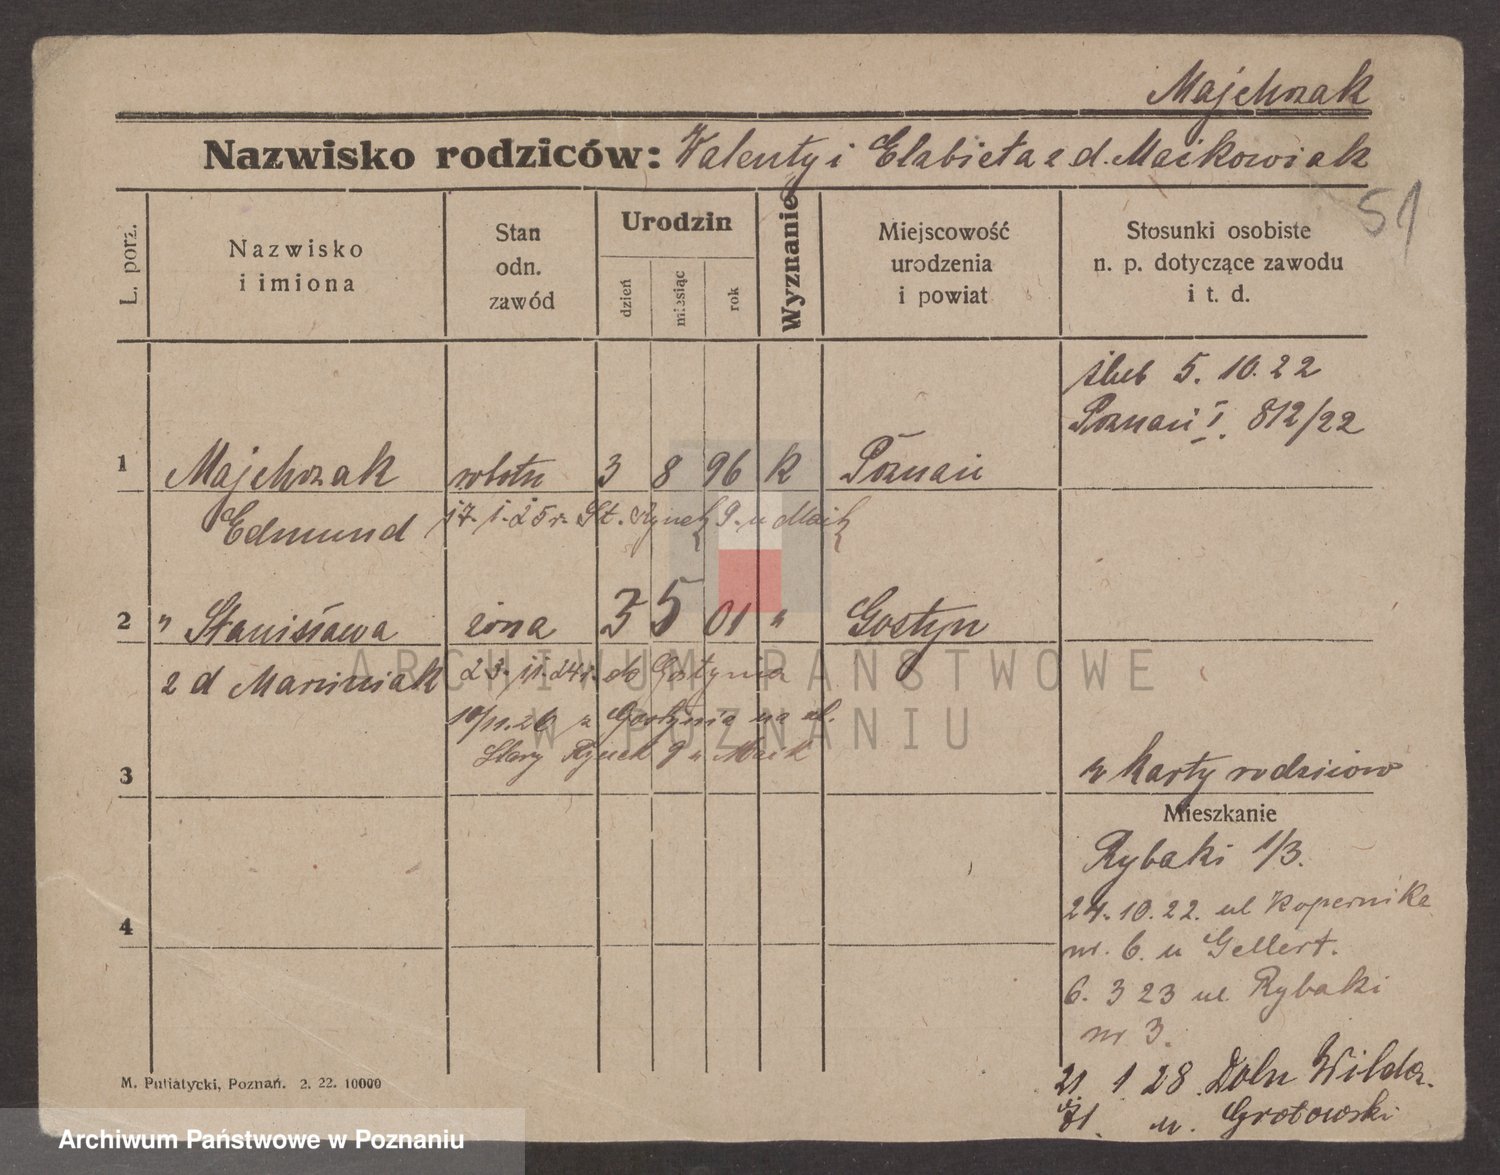 Majchrzak
Nazwisko rodziców: Walenty i Elżbieta z d. Maćkowiak
51
L. porz.
Nazwisko
i imiona
Stan
odn.
zawód
Urodzin
dzień
miesiąc
rok
Wyznanie
Miejscowość
urodzenia
i powiat
Stosunki osobiste
n. p. dotyczące zawodu
i t. d.
ślub 5. 10. 22
Poznań I. 812/22
1 Majchrzak robotn 3 8 96 k Poznań
Edmund 17. 1. 25 r. St. Rynek 9. u
2 " Stanisława żona 3 5 01 " Gostyn
z d Marciniak 23. 11. 24 r. do Gostynia
10/11. 26 z Gostynia na ul.
Stary Rynek 9 u
3
z karty rodziców
Mieszkanie
Rybaki 1/3.
24. 10. 22. ul Kopernika
nr. 6. u Gellert.
4
6. 3 23 ul. Rybaki
nr 3.
21 1 28. Doln Wilda.
71. u. Grotowski
M. Putiatycki, Poznań. 2. 22. 10000
ARCHIWUM PAŃSTWOWE
W POZNANIU
Archiwum Państwowe w Poznaniu